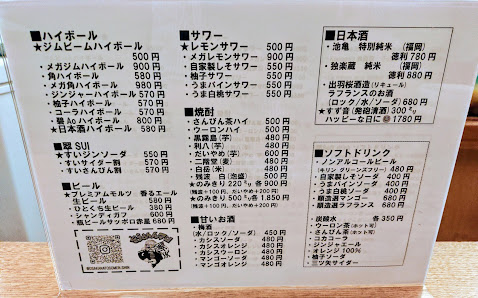 ■ハイボール
★ジムビームハイボール
500円
・メガジムハイボール 900円
・角ハイボール 580円
・メガ角ハイボール 980円
・ジンジャーハイボール 570円
・柚子ハイボール 570円
・コーラハイボール 570円
・碧Aoハイボール 800円
★日本酒ハイボール 580円
■翠SUI
★すいジンソーダ 550円
・すいサイダー割 570円
・すいさんぴん割 570円
■ビール
★プレミアムモルツ 香るエール
生ビール 580円
・ひとくち生ビール 380円
・シャンディガフ 600円
・瓶ビールサッポロ赤星 680円
■サワー
★レモンサワー 500円
・メガレモンサワー 900円
・自家製しそサワー 550円
・柚子サワー 550円
・うまパインサワー 580円
・うま白桃サワー 580円
■焼酎
・さんぴん茶ハイ 500円
・ウーロンハイ 500円
・黒霧島(芋) 480円
・利八(芋) 480円
・だいやめ(芋) 600円
・二階堂(麦) 480円
・白岳(米) 480円
・残波 白(泡盛) 500円
★のみきり220㍉ 各900円
(残波+100円、だいやめ+200円)
★のみきり500㍉ 各1,850円
(残波+100円、だいやめ+200円)
■甘いお酒
・梅酒
(水/ロック/ソーダ) 450円
・カシスソーダ 480円
・カシスオレンジ 480円
・カシスウーロン 480円
・マンゴーソーダ 480円
・マンゴオレンジ 480円
■日本酒
・池亀 特別純米 (福岡)
徳利780円
・独楽蔵 純米 (福岡)
徳利880円
・出羽桜酒造(リキュール)
ラフランスのお酒
(ロック/水/ソーダ) 680円
★すず音(発泡清酒)300㍉
ハッピーな日に 1780円
■ソフトドリンク
・ノンアルコールビール
(キリン グリーンズフリー) 480円
・自家製しそソーダ 400円
・うまパインソーダ 400円
・うま白桃ソーダ 400円
・順造選マンゴー 680円
・順造選ラフランス 680円
・炭酸水 各350円
・ウーロン茶(ホット可)
・さんぴん茶(ホット可)
・コカコーラ
・ジンジャエール
・オレンジ100%
・柚子ソーダ
・三ツ矢サイダー